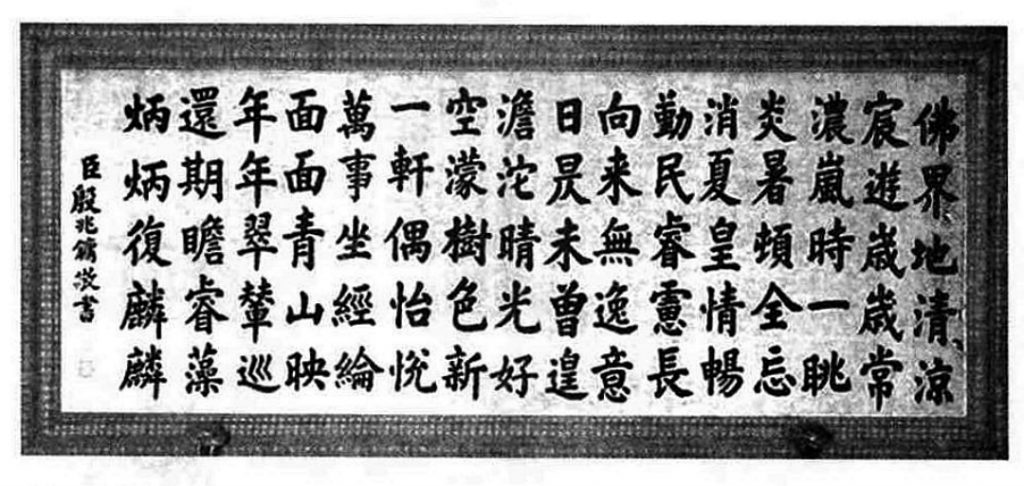 佛界地清涼
宸遊歲歲常
濃嵐時一眺
炎暑頓全忘
消夏皇情暢
勤民睿慮長
向来無逸意
日昃未曾遑
澹沱晴光好
空濛樹色新
一軒偶怡悅
萬事坐經綸
面面青山映
年年翠輦巡
還期瞻睿藻
炳炳復麟麟
臣殷兆鏞敬書